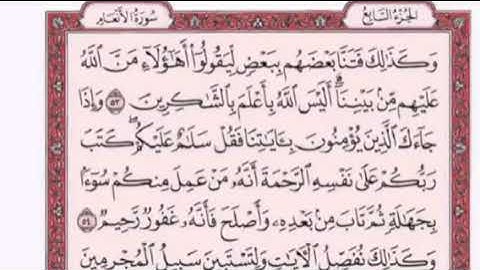 الجزء السابع
سورة الأنعام
وَكَذَٰلِكَ فَتَنَّا بَعْضَهُم بِبَعْضٍ لِّيَقُولُوٓا۟ أَهَٰٓؤُلَآءِ مَنَّ ٱللَّهُ
عَلَيْهِم مِّنۢ بَيْنِنَآ ۗ أَلَيْسَ ٱللَّهُ بِأَعْلَمَ بِٱلشَّٰكِرِينَ ٥٣ وَإِذَا
جَآءَكَ ٱلَّذِينَ يُؤْمِنُونَ بِـَٔايَٰتِنَا فَقُلْ سَلَٰمٌ عَلَيْكُمْ ۖ كَتَبَ
رَبُّكُمْ عَلَىٰ نَفْسِهِ ٱلرَّحْمَةَ ۖ أَنَّهُۥ مَنْ عَمِلَ مِنكُمْ سُوٓءًۢا
بِجَهَٰلَةٍ ثُمَّ تَابَ مِنۢ بَعْدِهِۦ وَأَصْلَحَ فَأَنَّهُۥ غَفُورٌ رَّحِيمٌ ٥٤
وَكَذَٰلِكَ نُفَصِّلُ ٱلْـَٔايَٰتِ وَلِتَسْتَبِينَ سَبِيلُ ٱلْمُجْرِمِينَ